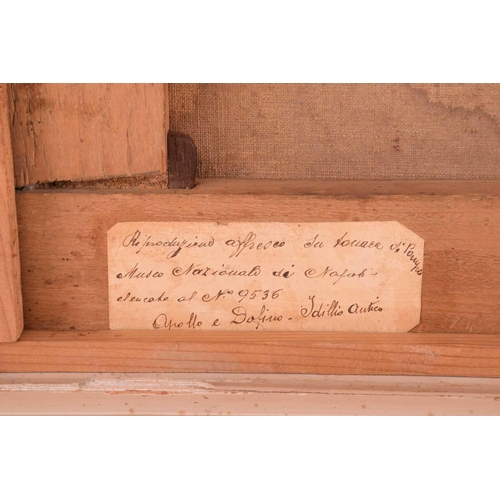 Riproduzione affresco su tonaca di Pompei
Museo Nazionale di Napoli
elencato al N.o 9536
Apollo e Dafine - Idillio Antico